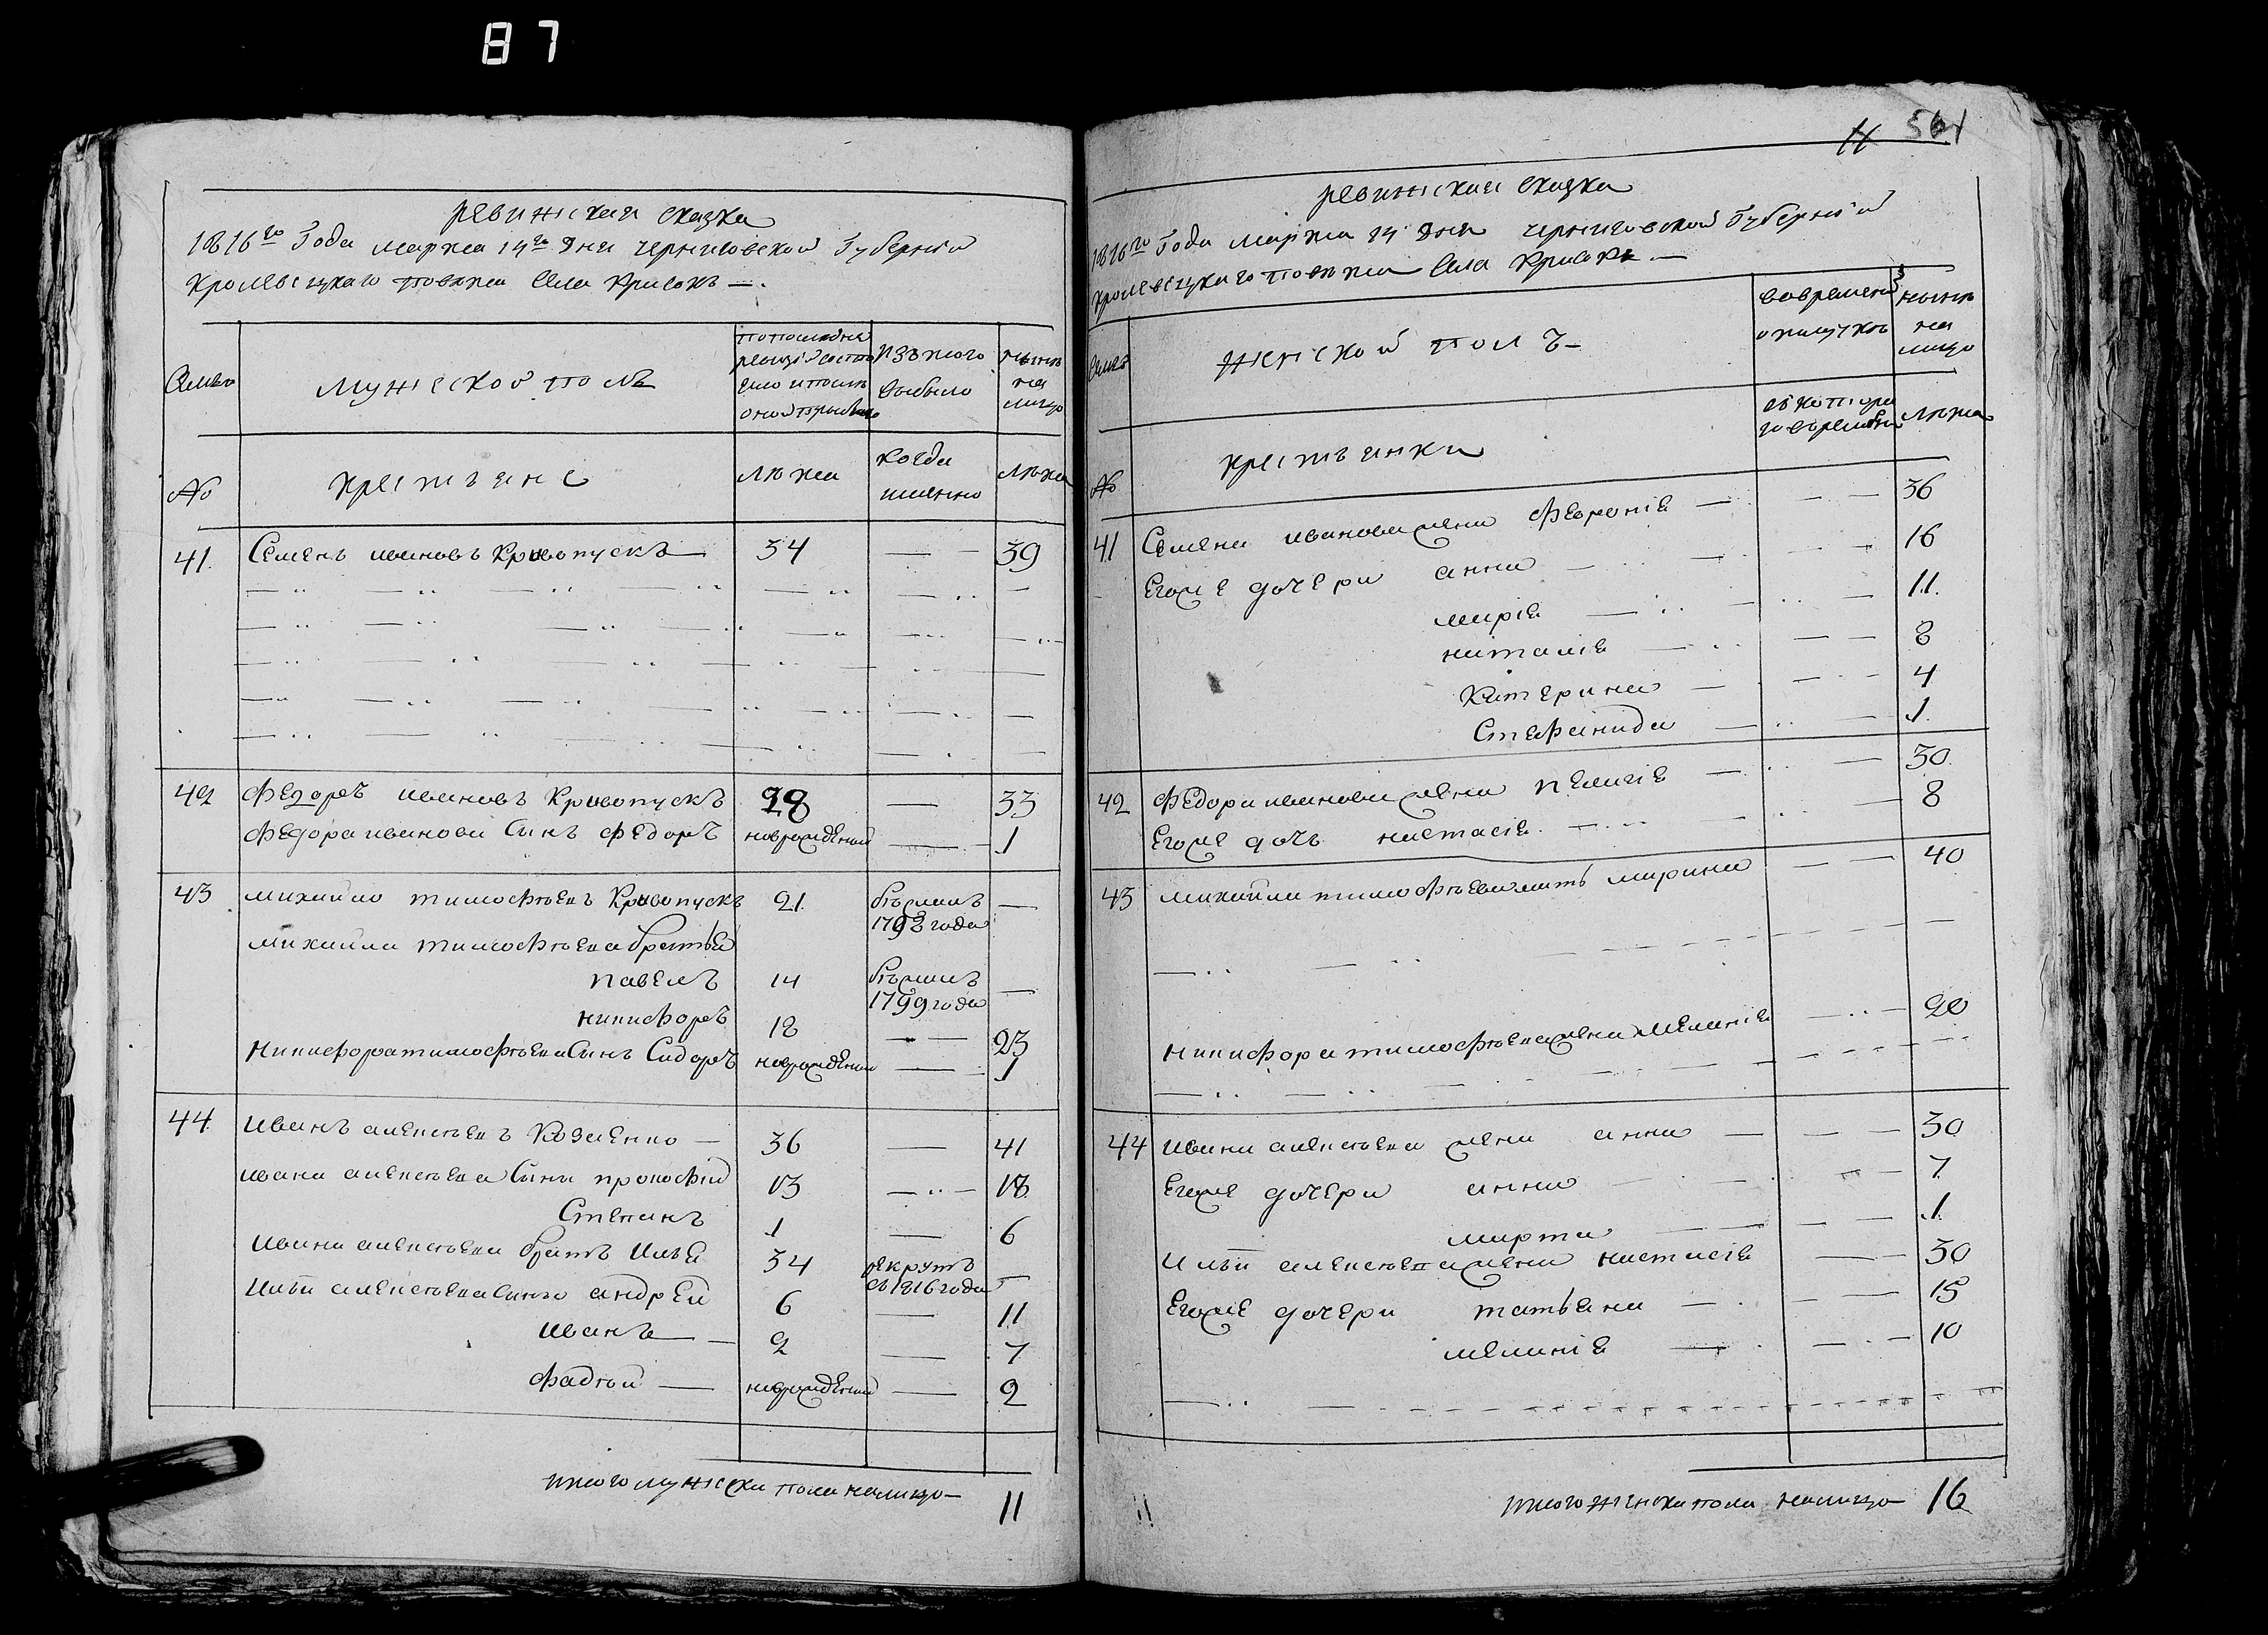 87
ревижская сказка
1816го Года марта 14го дня черниговской Губерній
кролевецкаго повѣта села Крисокъ —.
Семьи
мужеской полъ
попоследней ревизіи состояло и после оной прибыло
изътого выбыло
нынѣ на лицо
№
крестьяне
лѣта
когда именно
лѣта
41. Семенъ ивановъ Кривопускъ 34 — 39
42 Федоръ ивановъ Кривопускъ 28 — 33
Федора иванова Сынъ Федоръ новрожденый — 1
43 михайло тимофѣевъ Кривопускъ 21. бѣжалъ 1793 года —
михайла тимофѣева братья
павелъ 14 бѣжалъ 1799 года —
никифоръ 18 — 23
Никифора тимофѣева Сынъ Сидоръ новрожденый — 1
44 Иванъ алексѣевъ Козаенко — 36 — 41
ивана алексѣева Сыны прокофій 13 — 18
Степанъ 1 — 6
Ивана алексѣева братъ Илья 34 рекрутъ съ 1816 года —
Ильи алексѣева Сыны андрей 6 — 11
иванъ — 2 — 7
фадѣй — новрожденый — 2
итого мужеска пола налицо — 11
11 561
ревижская сказка
1816го Года марта 14 дня черниговской Губерній
кролевецкаго повѣта Села Крисокъ —
Семьи
женской полъ —
вовременной отлучкѣ
нынѣ на лицо
№
крестьянки
съ котораго времени
лѣта
41 Семена иванова жена Февронія — 36
Егоже дочери анна — 16
марія — 11.
наталія — 8
Катерина — 4
Стефанида — 1.
42 Федора иванова жена пелагія — 30.
Егоже дочь настасія. — 8
43 михайла тимофѣева мать марина — 40
Никифора тимофѣева жена меланія — 20
44 ивана алексѣева жена анна — 30
Егоже дочери анна — 7
марта — 1.
Ильи алексѣева жена настасія — 30
Егоже дочери татьяна — 15
меланія — 10
итого женска пола налицо — 16